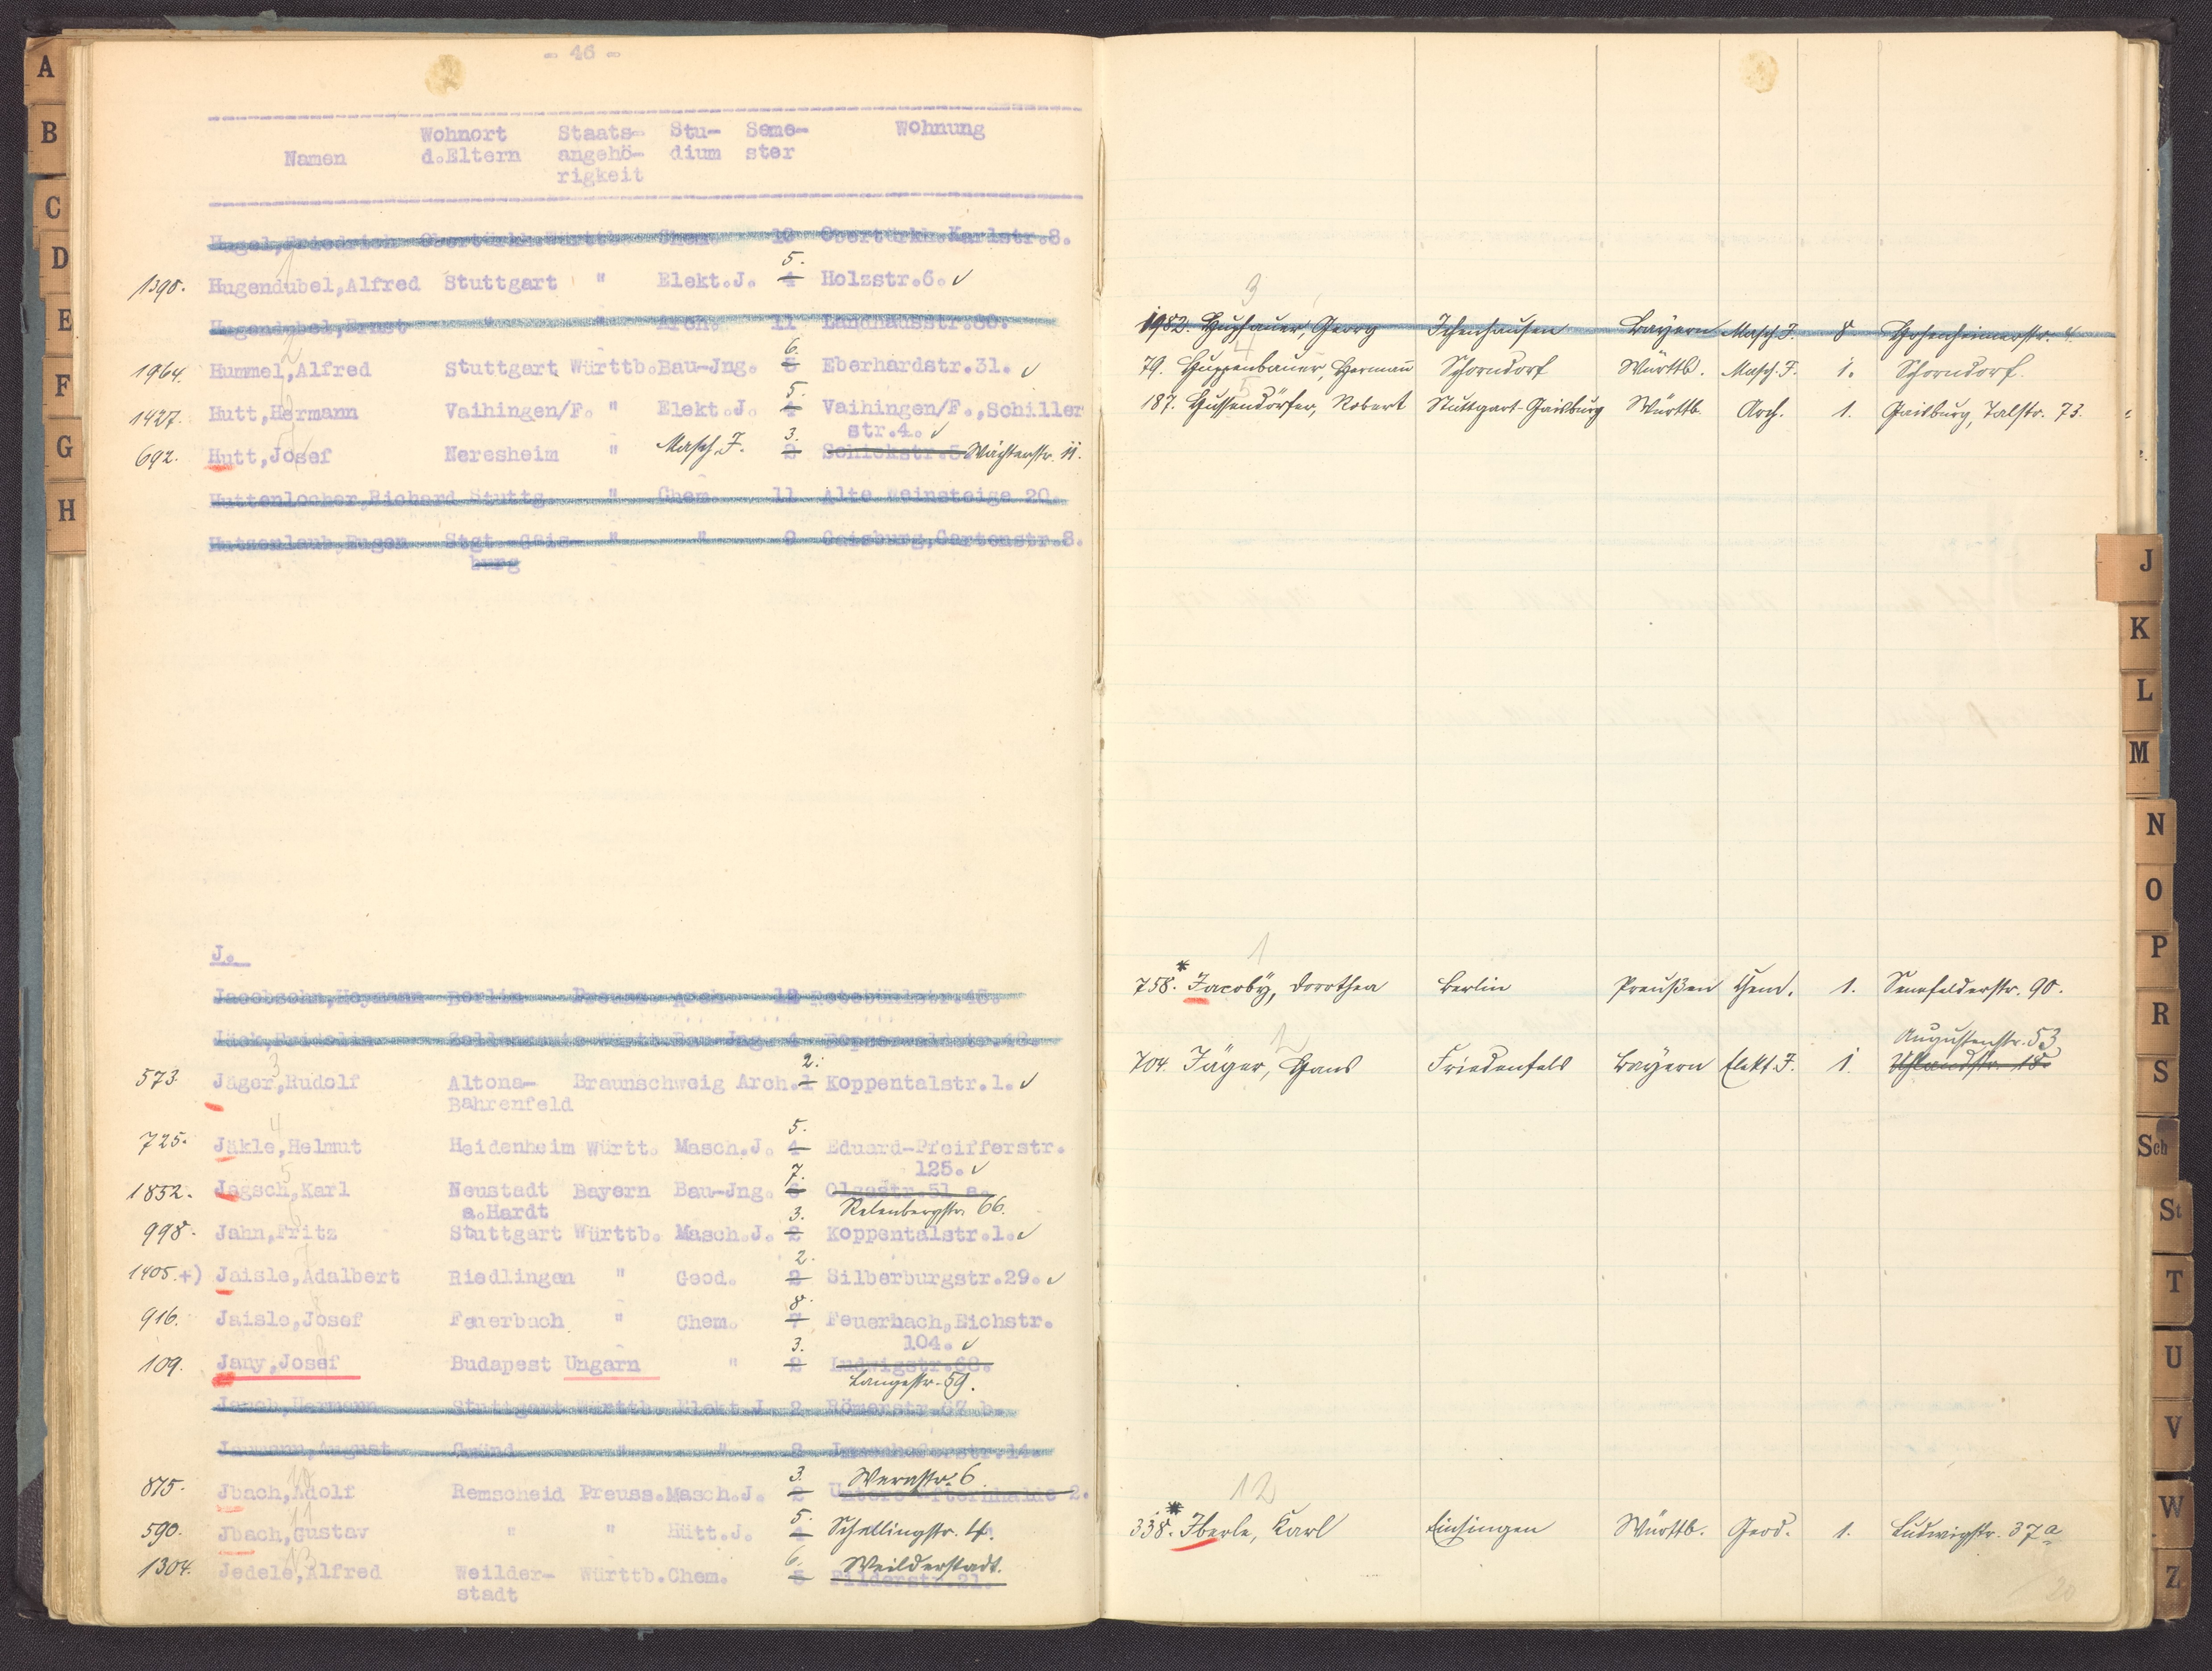 - 46 -
Namen Wohnort d.Eltern Staats-angehö-rigkeit Stu-dium Seme-ster Wohnung
Hugel,Friedrich Obertürkh.Württb. Chem. 10 Obertürkh.Karlstr.8.
1398. Hugendubel,Alfred Stuttgart " Elekt.J. 4 5. Holzstr.6. ✓
Hugendubel,Ernst " " Arch. 11 Landhausstr.80.
1964. Hummel,Alfred Stuttgart Württb. Bau-Jng. 5 6. Eberhardstr.31. ✓
1427. Hutt,Hermann Vaihingen/F. " Elekt.J. 4 5. Vaihingen/F.,Schiller
str.4. ✓
692. Hutt,Josef Neresheim " Masch.J. 2 3. Schickstr.5 Wächterstr. 11.
Huttenlocher,Richard Stuttg. " Chem. 11 Alte Weinsteige 20.
Hutzenlaub,Eugen Stgt-Gais- " " 8 Gaisburg,Gartenstr.8.
burg
J.
Jacobsohn, Berlin Preuss. Arch. 12
Jäck,Fridolin Württ. Bau-Jng. 4
573. Jäger,Rudolf Altona- Braunschweig Arch. 1 2. Koppentalstr.1. ✓
Bahrenfeld
725. Jäkle,Helmut Heidenheim Württ. Masch.J. 4 5. Eduard-Pfeifferstr.
125. ✓
1852. Jagsch,Karl Neustadt Bayern Bau-Jng. 6 7. Olgastr.51 a.
a.Hardt Relenbergstr. 66.
998. Jahn,Fritz Stuttgart Württb. Masch.J. 2 3. Koppentalstr.1. ✓
1405. +) Jaisle,Adalbert Riedlingen " Geod. 2 2. Silberburgstr.29. ✓
916. Jaisle,Josef Feuerbach " Chem. 7 8. Feuerbach,Eichstr.
104. ✓
109. Jany,Josef Budapest Ungarn " 2 3. Ludwigstr.68.
Langestr. 59.
Jauch,Hermann Stuttgart Württb. Elekt.J. 2 Römerstr.67 b.
Jaumann,August Gmünd " " 8
875. Jbach,Adolf Remscheid Preuss.Masch.J. 2 3. Wernstr. 6
2.
590. Jbach,Gustav " " Hütt.J. 4 5. Schellingstr. 4.
1304. Jedele,Alfred Weilder- Württb.Chem. 5 6. Weilderstadt.
stadt Filderstr.21.
3
1982. Hupfauer, Georg Ichenhausen Bayern Masch. J. 8 Hohenheimerstr. 4.
4
79. Huppenbauer, Hermann Schorndorf Württb. Masch. J. 1. Schorndorf.
5
187. Hussendörfer, Robert Stuttgart-Gaisburg Württb. Arch. 1. Gaisburg, Talstr. 73.
1
758.* Jacoby, Dorothea Berlin Preußen Chem. 1. Senefelderstr. 90.
2 Augustenstr. 53
704. Jäger, Hans Friedenfels Bayern Elekt. J. 1. Uhlandstr. 18.
12
338.* Jberle, Karl Einsingen Württb. Geod. 1. Ludwigstr. 37a
20
A
B
C
D
E
F
G
H
J
K
L
M
N
O
P
R
S
Sch
St
T
U
V
W
Z